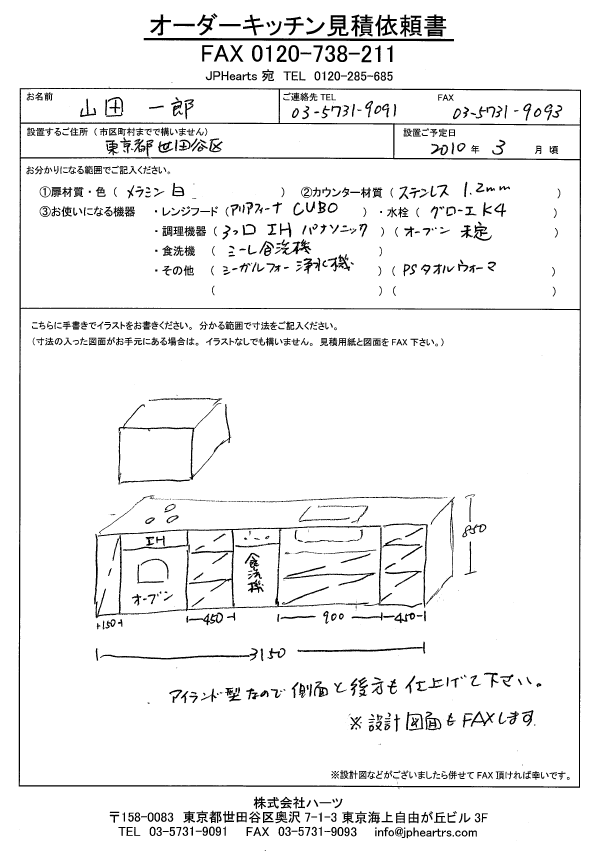 オーダーキッチン見積依頼書
FAX 0120-738-211
JPHearts 宛 TEL 0120-285-685
お名前 山田 一郎 ご連絡先 TEL 03-5731-9091 FAX 03-5731-9093
設置するご住所（市区町村までで構いません） 東京都世田谷区 設置ご予定日 2010 年 3 月 頃
お分かりになる範囲でご記入ください。
①扉材質・色（ メラミン 白 ） ②カウンター材質（ ステンレス 1.2mm ）
③お使いになる機器 ・レンジフード（アリアフィーナ CUBO ） ・水栓（ グローエ K4 ）
・調理機器（ 3ッ口 IH パナソニック ）（ オーブン 未定 ）
・食洗機 （ ミーレ食洗機 ）
・その他 （ シーガルフォー浄水機 ）（ PSタオルウォーマ ）
（ ）（ ）
こちらに手書きでイラストをお書きください。 分かる範囲で寸法をご記入ください。
（寸法の入った図面がお手元にある場合は。イラストなしでも構いません。見積用紙と図面をFAX下さい。）
850
IH
オーブン
食洗機
150 450 900 450
3150
アイランド型なので側面と後方も仕上げて下さい。
※設計図面もFAXします
※設計図などがございましたら併せて FAX 頂ければ幸いです。
株式会社ハーツ
〒158-0083 東京都世田谷区奥沢 7-1-3 東京海上自由が丘ビル 3F
TEL 03-5731-9091 FAX 03-5731-9093 info@jpheartrs.com